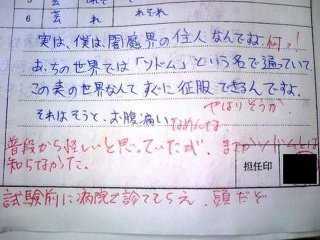 5 芸
6 芸 れ それぞれ
実は、僕は、闇魔界の住人なんですね。何っ!
あっちの世界では「ソドム」という名で通っていて
この表の世界なんてすぐに征服できるんですよ。
やはりそうか
それはそうと、お腹痛い なめんなよ
普段から怪しいと思っていたが、まさかソドムとは
知らなかった。
担任印
試験前に病院で診てもらえ。頭だぞ